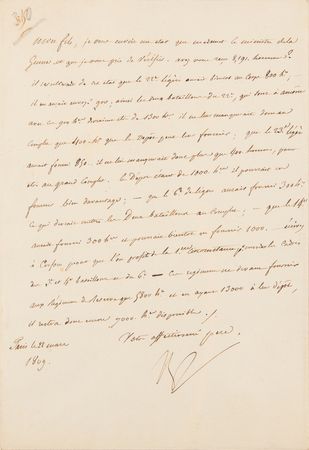 Mon fils, je vous envoie un état que me donne le ministre de la
Guerre et que je vous prie de vérifier. avez vous reçu 8,191 hommes?
il résulterait de cet état que le 22e léger aurait besoin au corps 800 hes,
il en aurait envoyé 900, ainsi les deux bataillons du 22e, qui sont à
avec ces 900 hes seraient de 1300 hes, il ne leur manquerait donc au
complet que 400 hes que le dépôt peut leur fournir; que le 23e léger
aurait fourni 850. il ne leur manquerait donc plus que 400 hommes, pour
être au grand complet. Le dépôt étant de 1000 hes il pourrait en
fournir bien davantage; que le 6e de ligne aurait fourni 300 hes
ce qui devrait mettre les deux bataillons au complet; que le
aurait fourni 300 hes et pourrait bientôt en fournir 1000.
à Corfou pour que l'on profite de la 1ère circonstance pour les Cadres
des 3e et 4e bataillons du 6e. Ces régiments devraient fournir
aux régiments de réserve 5800 hes et en ayant 13000 à leur dépôt,
il restera donc encore 7000 hes disponibles./.
Votre affectionné père.
Paris le mars
1809.